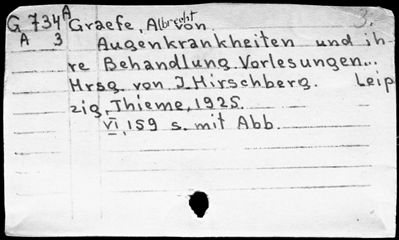 G 734 A Graefe, Albrecht von. 3.
A 3 Augenkrankheiten und ih-
re Behandlung. Vorlesungen...
Hrsg. von J. Hirschberg. Leip-
zig, Thieme, 1925.
VI, 159 s. mit Abb.